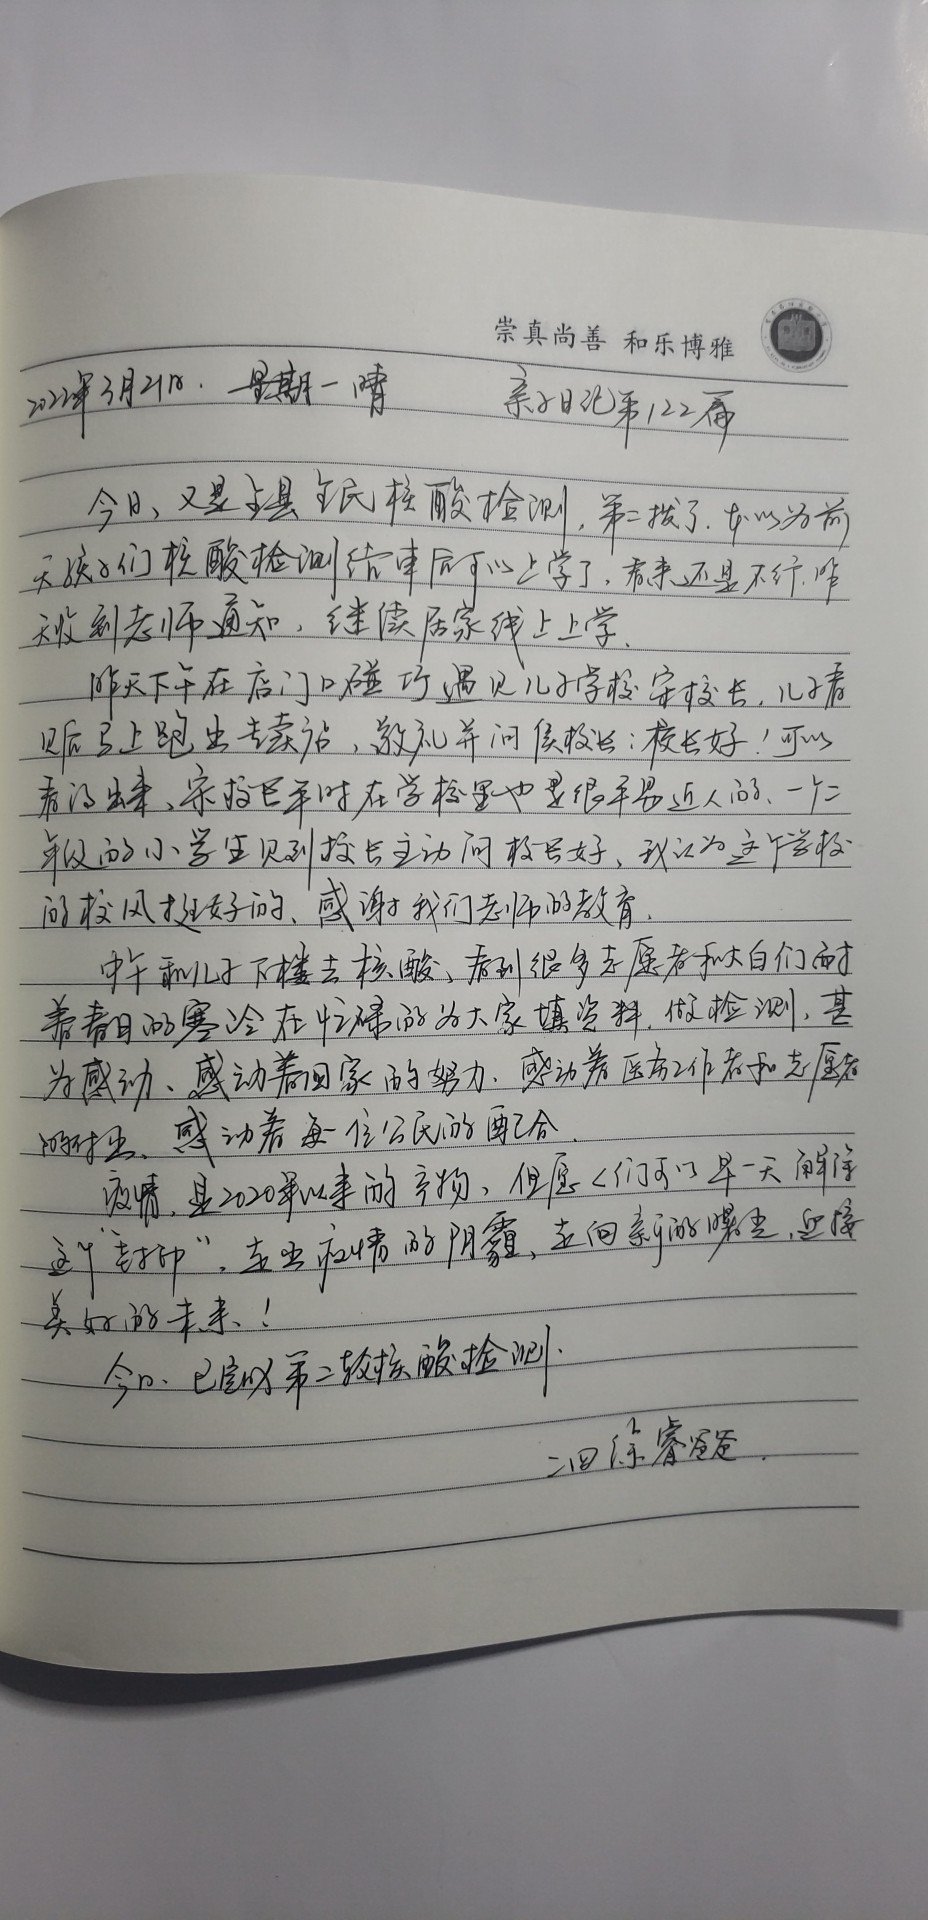 崇真尚善 和乐博雅
2022年3月21日. 星期一 晴 亲子日记第122篇
今日、又是全县全民核酸检测，第二拨了.本以为前
天孩子们核酸检测结束后可以上学了，看来还是不行.昨
天收到老师通知，继续居家线上上学.
昨天下午在店门口碰巧遇见儿子学校宋校长，儿子看
见后马上跑出去，敬礼并问侯校长：校长好！可以
看得出来、宋校长平时在学校里也是很平易近人的、一个二
年级的小学生见到校长主动问校长好、我认为这个学校
的校风挺好的、感谢我们老师的教育.
中午和儿子下楼去核酸、看到很多志愿者和大白们耐
着春日的寒冷在忙碌的为大家填资料.做检测，甚
为感动、感动着国家的努力.感动着医务工作者和志愿者
的付出、感动着每一位公民的配合.
疫情，是2020年以来的产物、但愿人们可以早一天解除
这个“封印”，走出疫情的阴霾、走向新的曙光，迎接
美好的未来！
今日.已完成第二轮核酸检测.
二四 徐睿爸爸.